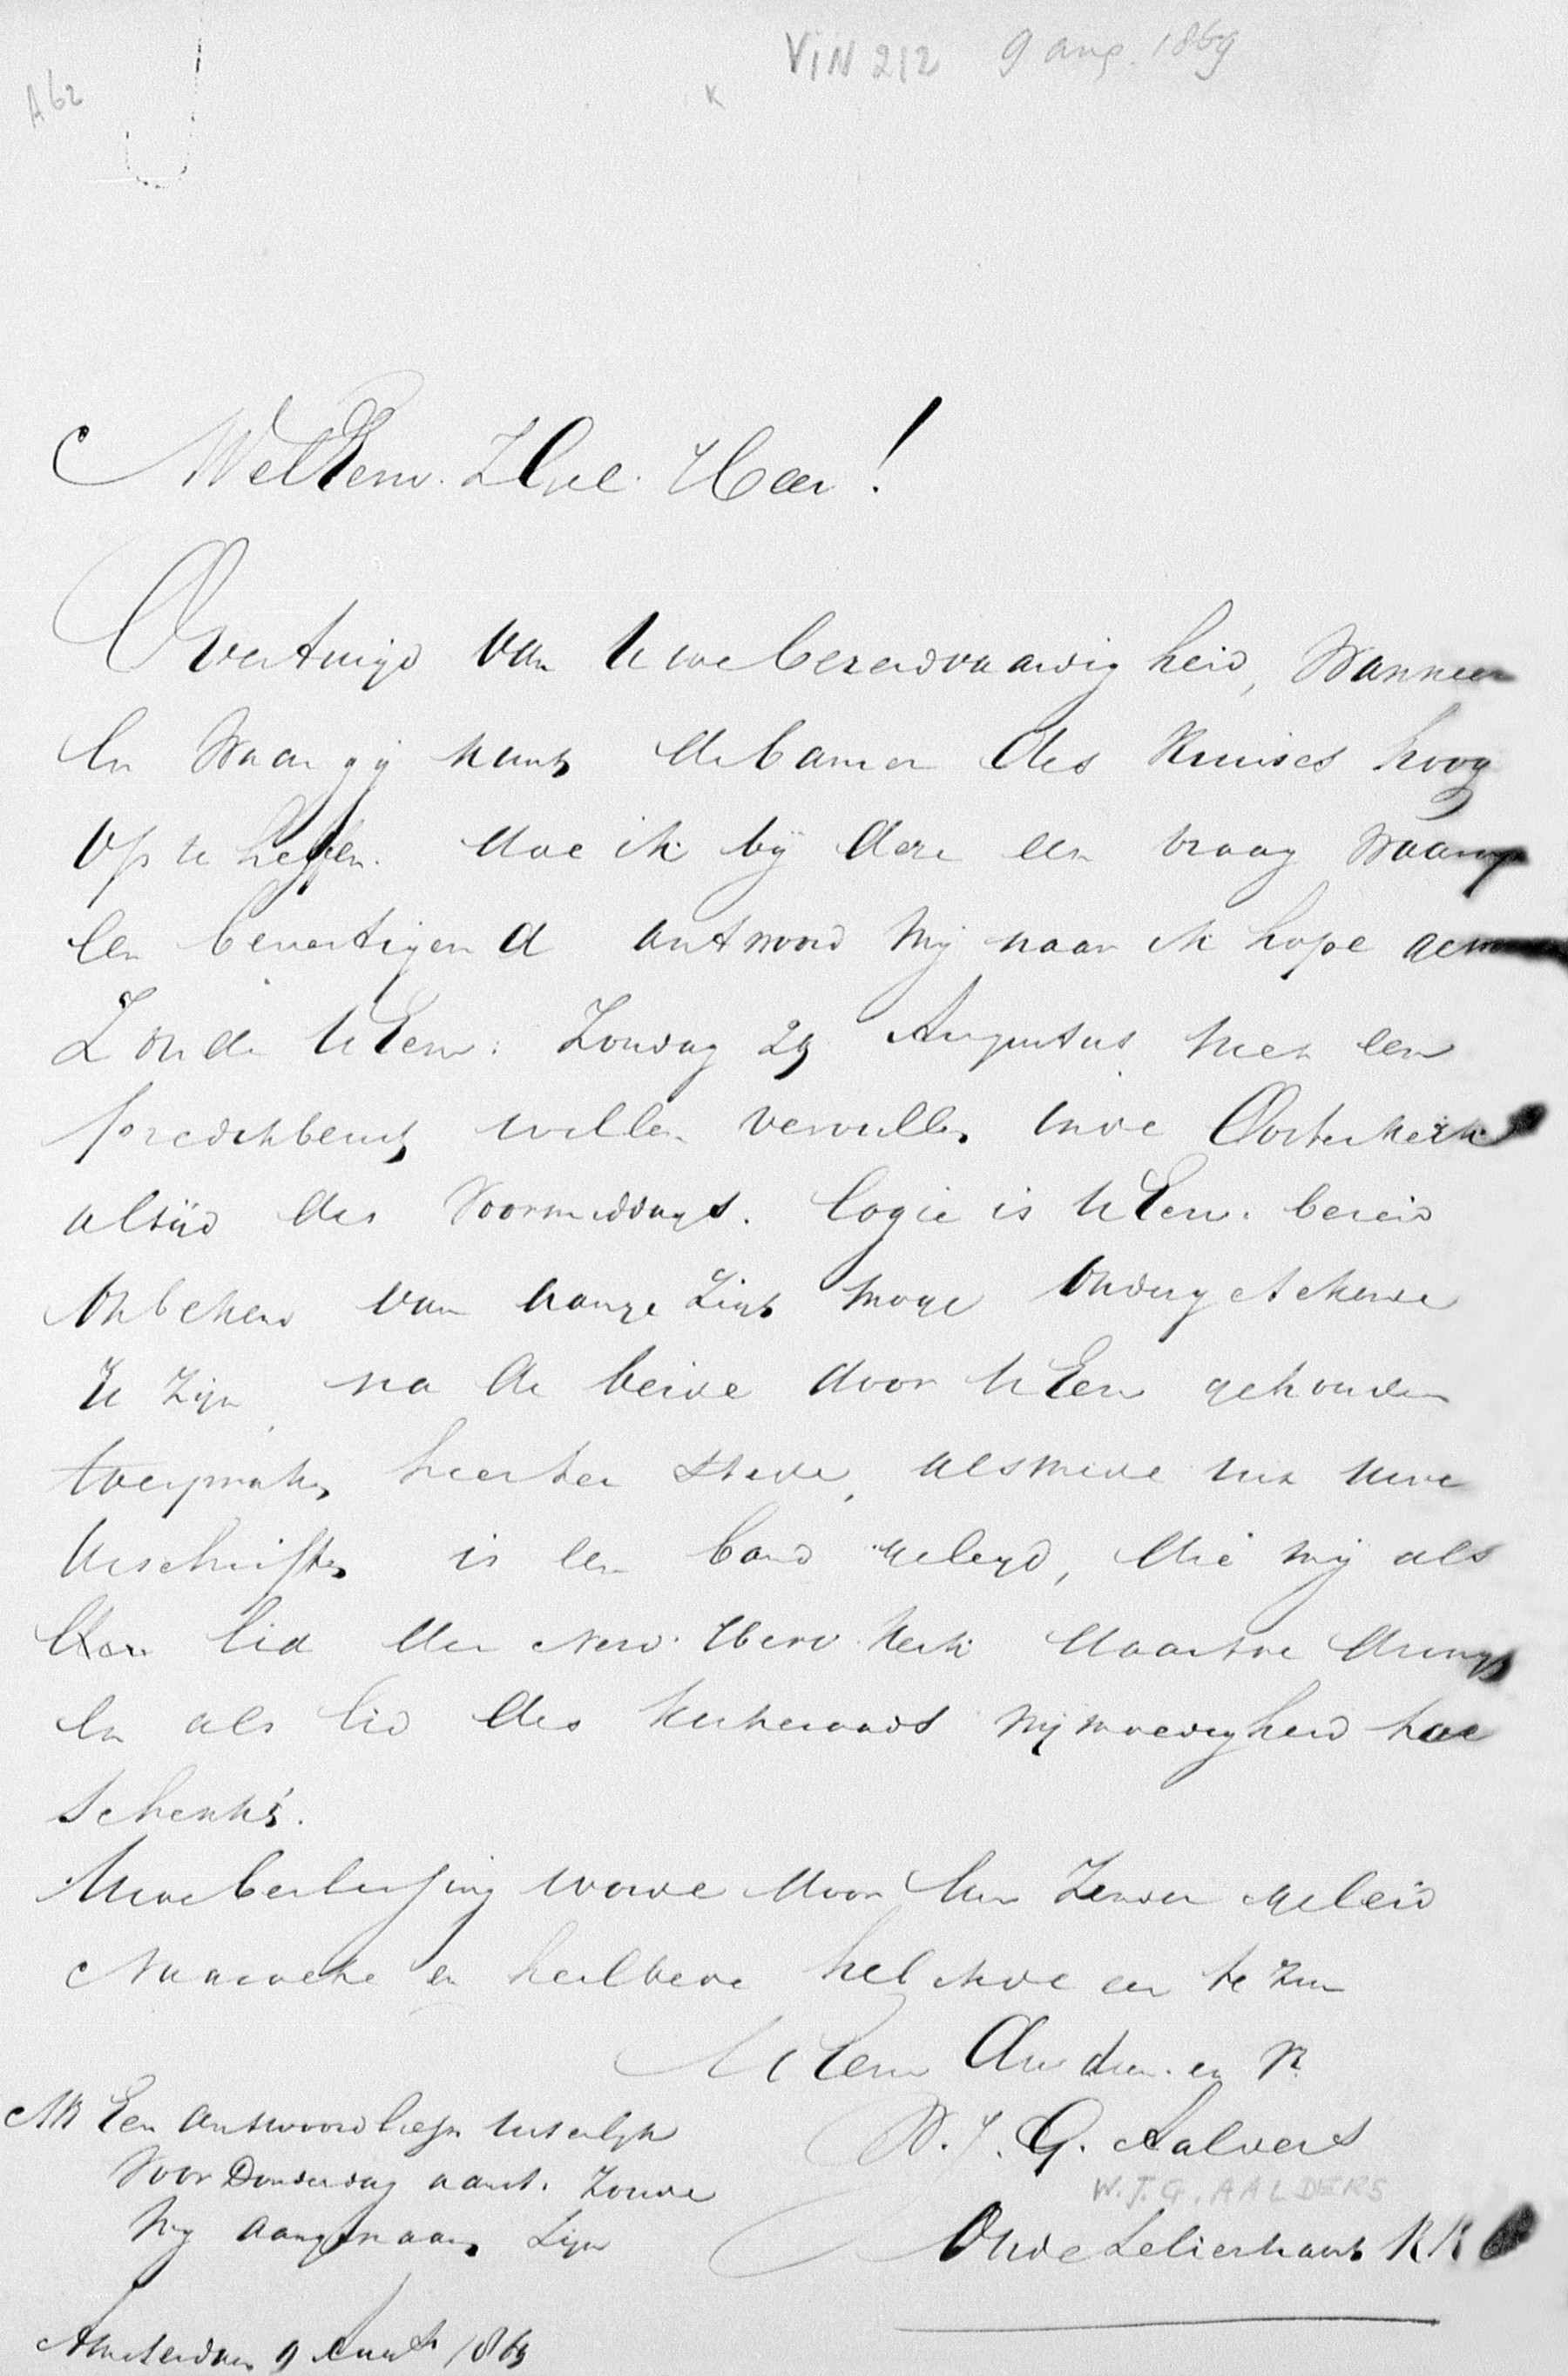 VIN 212 9 aug. 1869
A 62
WelEerw. ZGel. Heer!
Overtuigd van Uwe bereidvaardigheid, Wanneer
En Waar gij kunt de banier des Kruises hoog
op te heffen. doe ik bij deze een vraag Waarop
Een bevestigend antwoord mij naar ik hope
Zoude UEerw: Zondag 29 Augustus hier een
predikbeurt willen vervullen in de Oosterkerk
altijd des Voormiddags. Logie is UEerw. bereid
Onbekend van aangezigt moge Ondergeteekende
U zijn, na de beide door UEerw gehouden
toespraken hier ter stede, alsmede uit uwe
Geschriften is een band gelegd, die mij als
lid der Ned. Herv. Kerk daartoe dringt
En als lid des Kerkeraads vrijmoedigheid toe
schenkt.
Uwe beslissing worde door den Zender geleid
Naar wien en heilbede heb ik de eer te zijn
UEerw Dw dien. en Vr.
W. J. G. Aalders
W.J.G. AALDERS
Oude Leliestraat KK
NB Een antwoord liefst uiterlijk
Voor Donderdag aanst. Zoude
Mij aangenaam Zijn
Amsterdam 9 August 1869